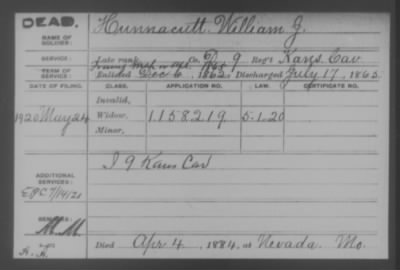 DEAD.
Hunnacutt William J.
NAME OF SOLDIER:
SERVICE:
Late rank, Co. D, 9 Reg't Kans Cav
TERM OF SERVICE:
Enlisted Dec 6, 1862 Discharged July 17, 1865
DATE OF FILING. CLASS. APPLICATION NO. LAW. CERTIFICATE NO.
Invalid,
1920 May 24 Widow, 1158219 5-1-20
Minor,
I 9 Kans Cav
ADDITIONAL SERVICES:
REMARKS:
M.M.
Died Apr 4, 1884, at Nevada Mo.